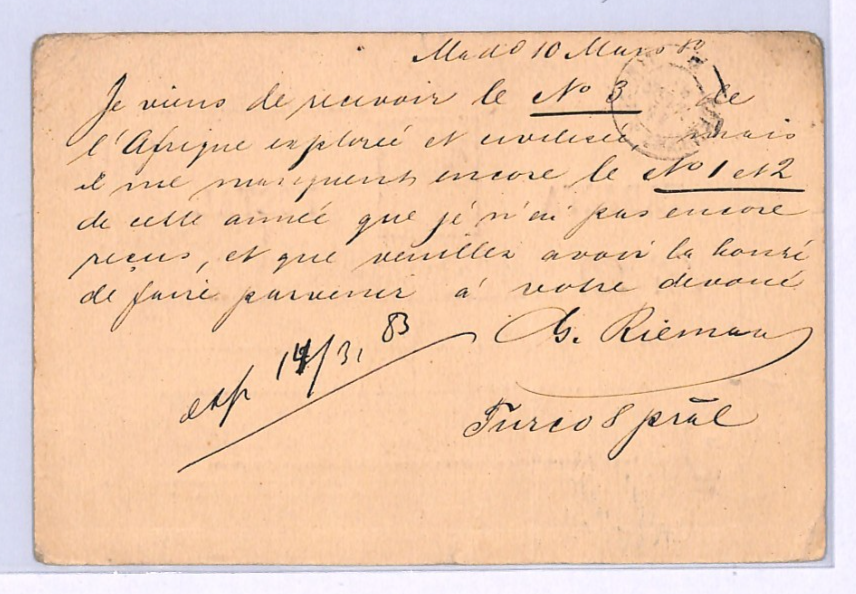 Mad.d 10 Mars
Je viens de recevoir le No 3 de
l'Afrique explorée et civilisée, mais
il me manquent encore le No 1 et 2
de cette année que je n'ai pas encore
reçus, et que veuillez avoir la bonté
de faire parvenir à votre devoué
G. Rieman
exp 14/3, 83
Turco 8 pral